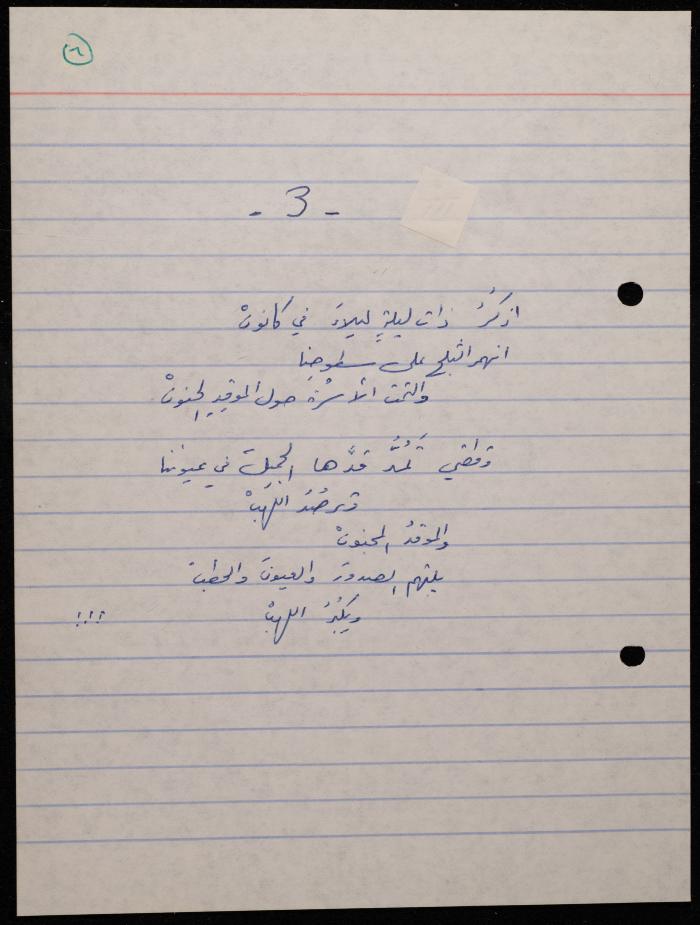 ٦
- 3 -
اذكُرُ ذات ليلةٍ ليلاءَ في كانونْ
انهمر الثلج على سطوحِنا
والتمّت الأسْرَةُ حول الموقِدِ المجنونْ
تَمُدُّ قدَّها الجميلَ في عيوننا
وترصُدُ اللهبْ
والموقدُ المجنونْ
يلتهم الصدورَ والعيونَ والحطبْ
ويكبُرُ اللهبْ !!!